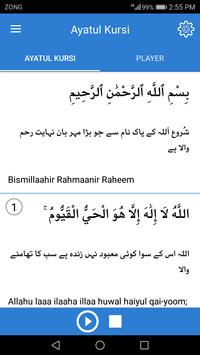 ZONG 73% 2:55 PM
Ayatul Kursi
AYATUL KURSI PLAYER
بِسْمِ ٱللَّهِ ٱلرَّحْمَٰنِ ٱلرَّحِيمِ
شُروع اَللہ کے پاک نام سے جو بڑا مہر بان نہایت رحم
والا ہے
Bismillaahir Rahmaanir Raheem
1
اللَّهُ لَا إِلَٰهَ إِلَّا هُوَ الْحَيُّ الْقَيُّومُ ۚ
اللہ اس کے سوا کوئی معبود نہیں زندہ ہے سب کا تھامنے
والا
Allahu laaa ilaaha illaa huwal haiyul qai-yoom;